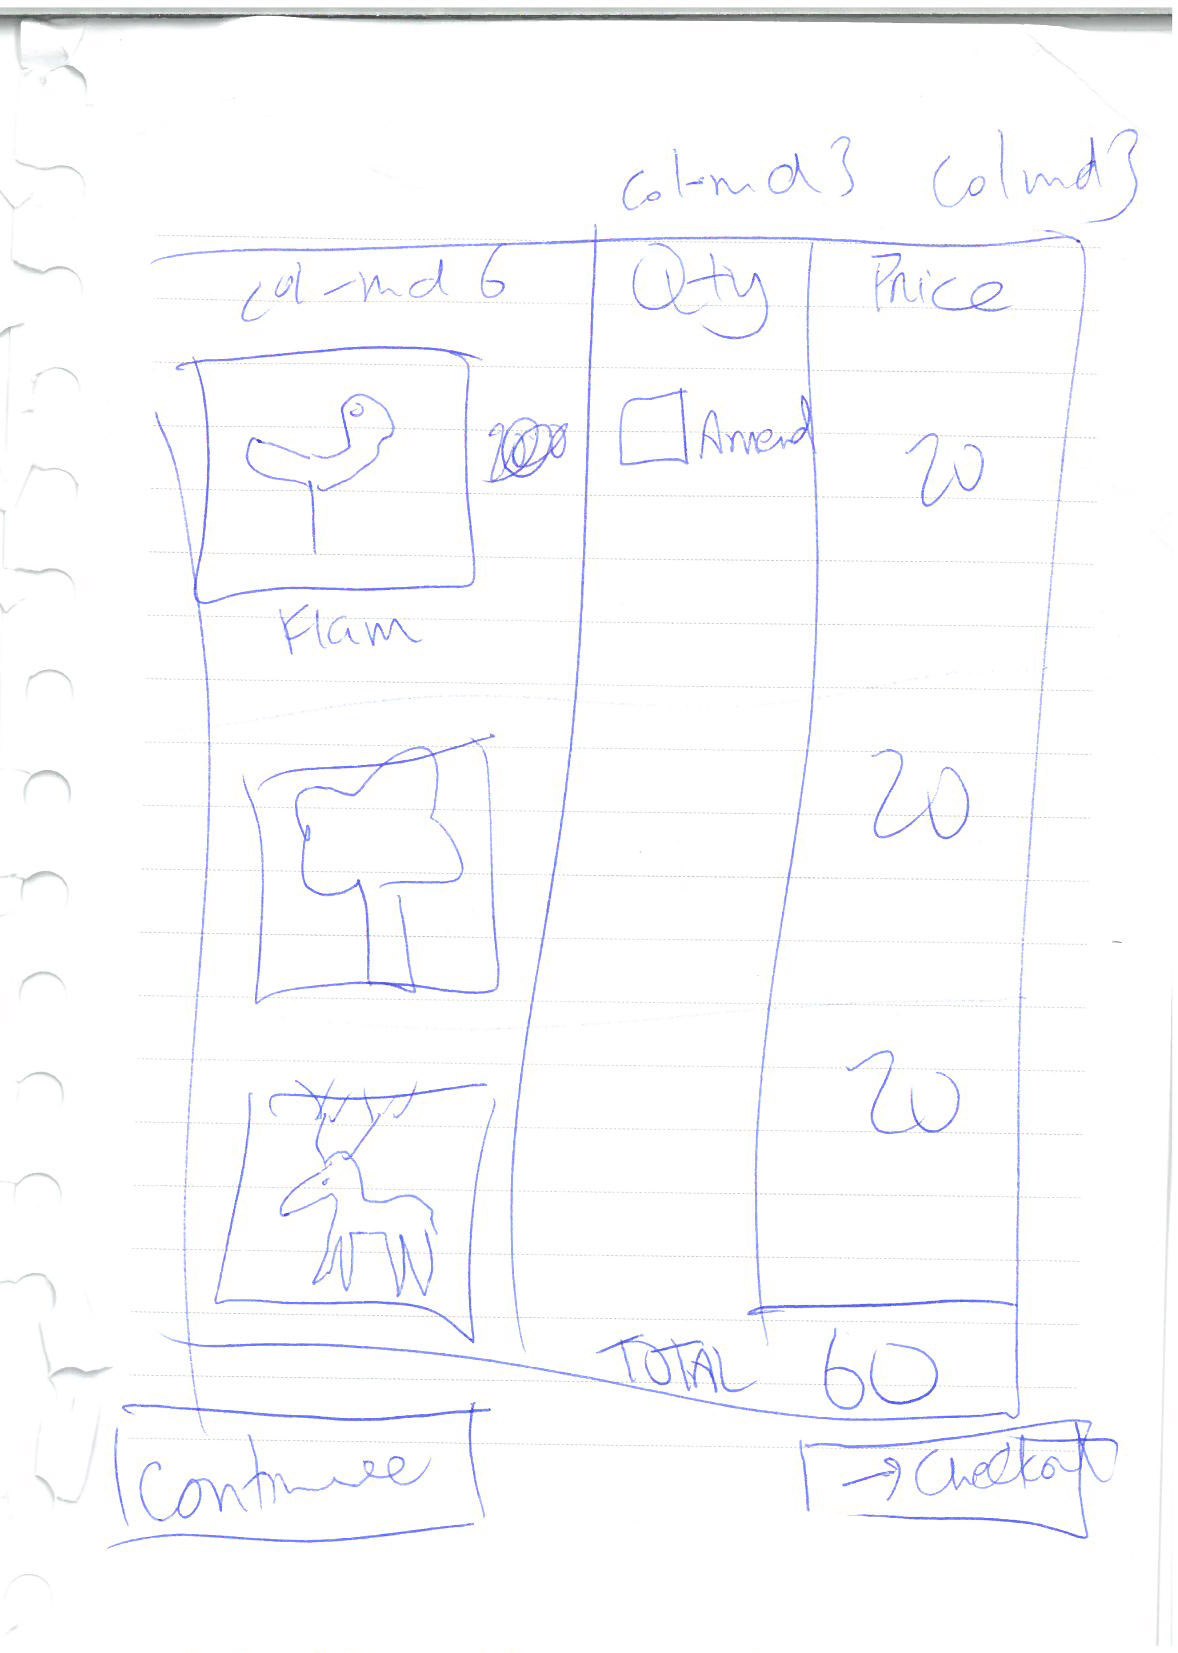 col-md 3 col md 3
col-md 6 Qty Price
Amend 20
Flam
20
20
TOTAL 60
Continue → Checkout